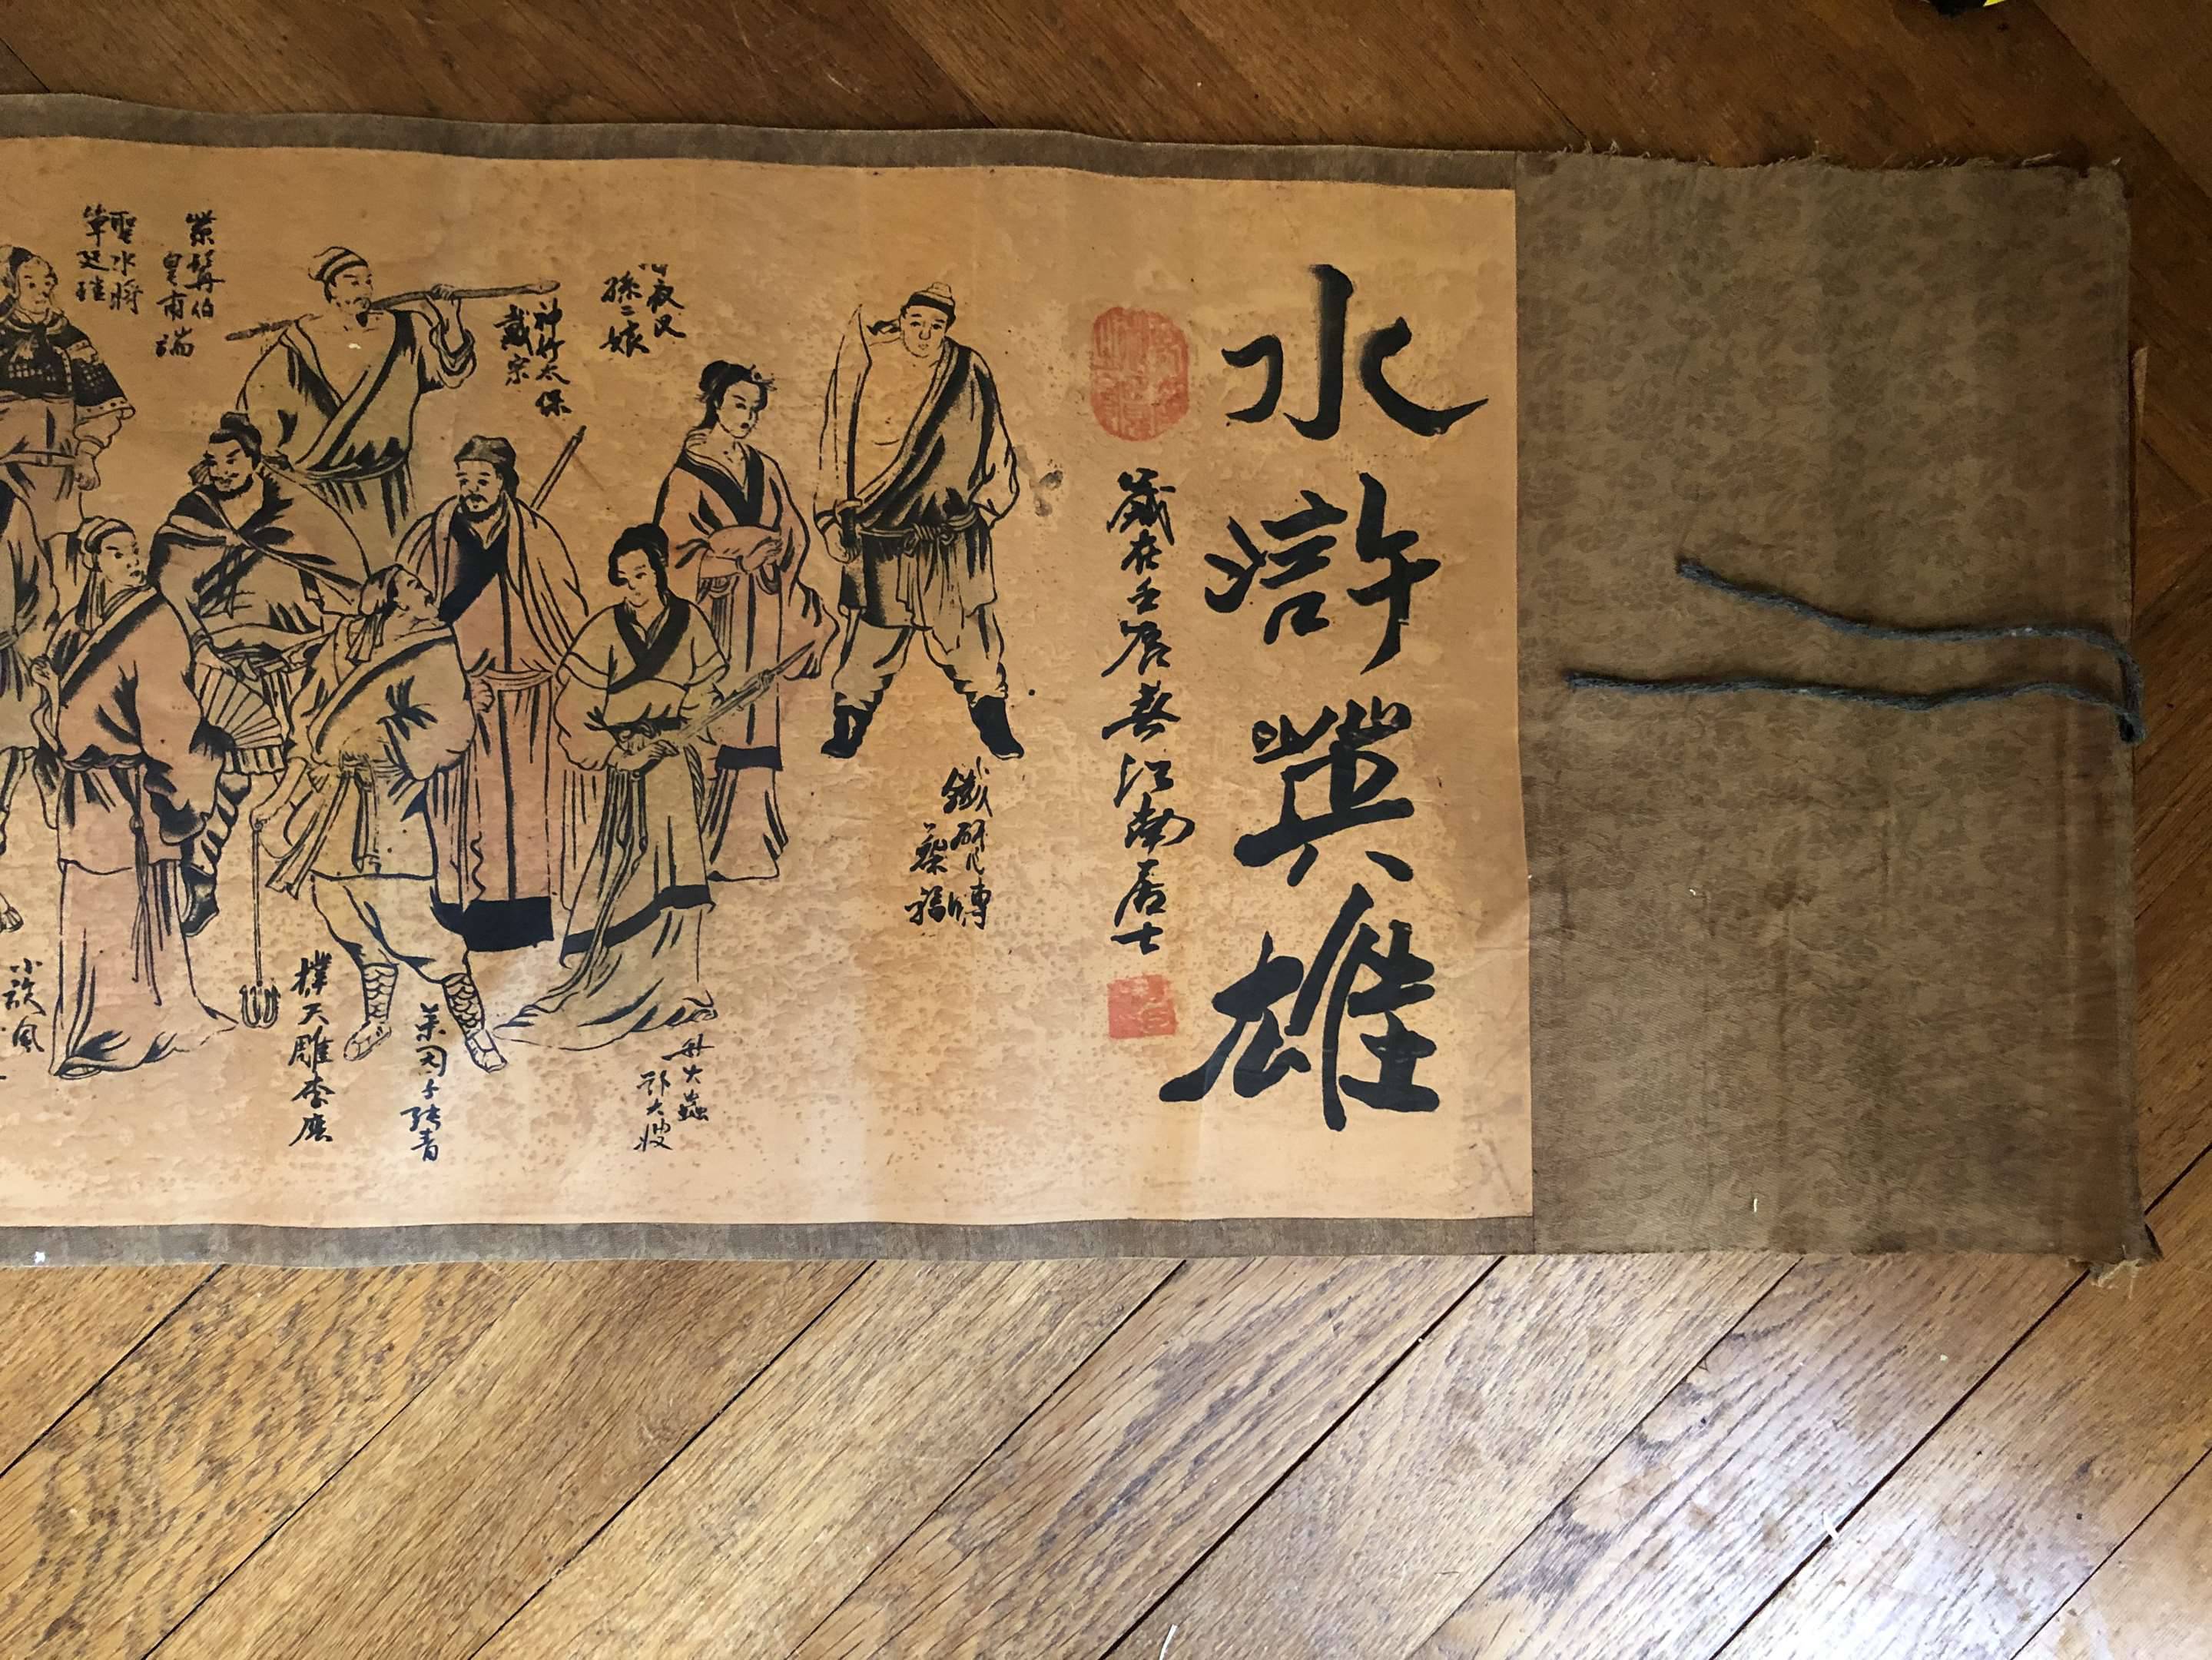 水滸英雄
歲在壬辰春江南居士
鐵
蔡福
孫二娘
神行太保
戴宗
大蟲
菜園子張青
撲天雕李應
紫髯伯
皇甫端
聖水將
單廷珪
小旋風